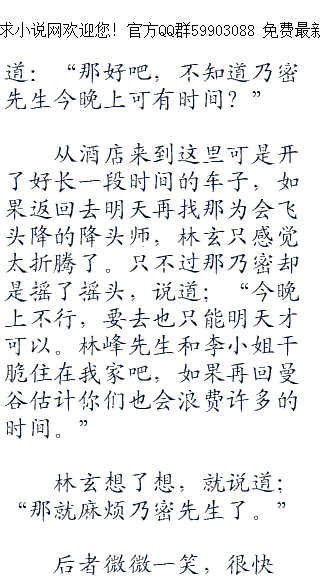 求小说网欢迎您！官方QQ群59903088 免费最新
道：“那好吧，不知道乃密
先生今晚上可有时间？”
从酒店来到这里可是开
了好长一段时间的车子，如
果返回去明天再找那为会飞
头降的降头师，林玄只感觉
太折腾了。只不过那乃密却
是摇了摇头，说道；“今晚
上不行，要去也只能明天才
可以。林峰先生和李小姐干
脆住在我家吧，如果再回曼
谷估计你们也会浪费许多的
时间。”
林玄想了想，就说道；
“那就麻烦乃密先生了。”
后者微微一笑，很快